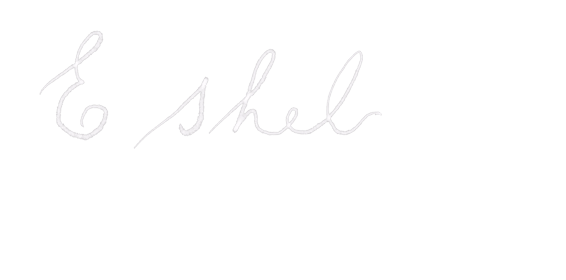 E shel